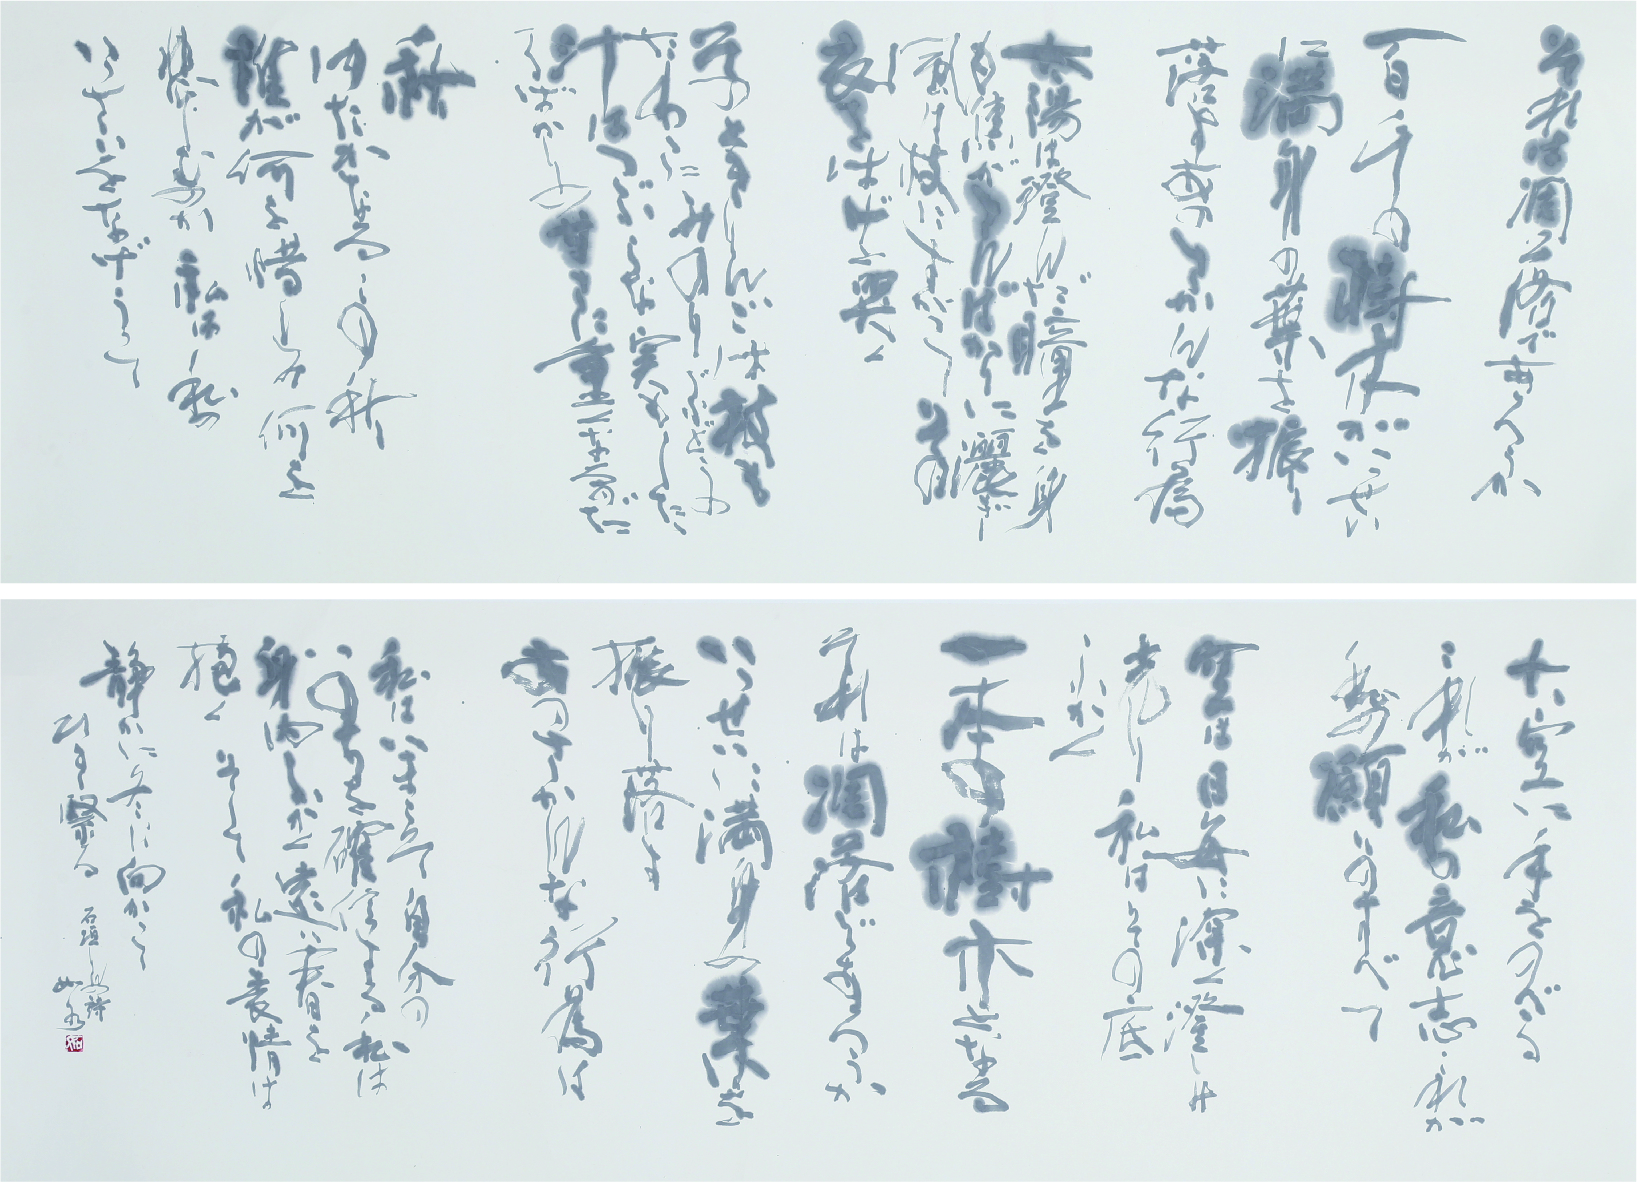 それは凋落であろうか
百千の樹木がいっせい
に満身の葉を振り
落すあのさかんな行為
太陽は澄んだ瞳を身
も焦がさんばかりに灑ぎ
風は枝にすがってその
衣をはげと哭く
そのとき りんごは枝も
たわわにみのり ぶどうの
汁はつぶらな実もしたた
るばかりの
甘さに重くなるのだ
秋
ゆたかなるこの秋
誰が何を惜しみ何を
悲しむのか 私は私の
いっさいをなげうって
大空に手をのべる
これが私の意志 これが
私の願いのすべて
空は日毎に深く澄み
光り 私はその底
ふかく
一本の樹木となる
それは凋落であろうか
いっせいに満身の葉を
振り落す
あのさかんな行為は
私はいまこそ自分の
いのちを確信する 私は
身内ふかく遠い春を
抱く そして私の表情は
静かに冬に向かって
ひき緊る
石垣りん 詩